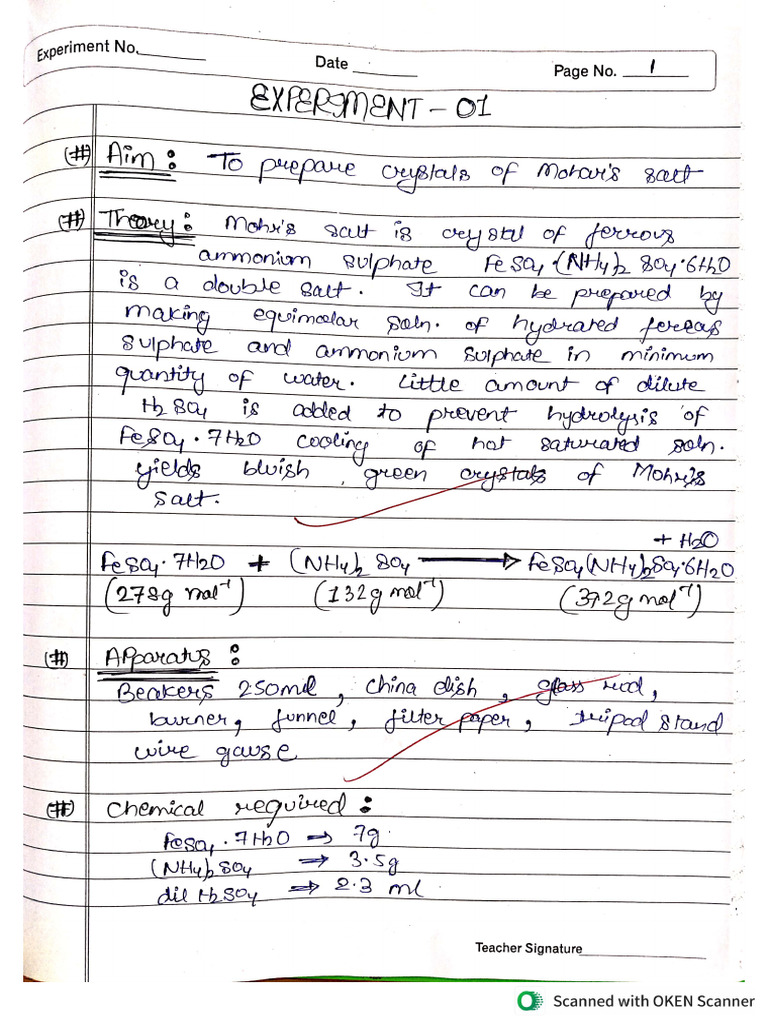 Experiment No.
Date
Page No. 1
EXPERIMENT - 01
(#) Aim : To prepare crystals of Mohar's salt
(#) Theory : Mohr's salt is crystal of ferrous
ammonium sulphate FeSO4·(NH4)2 SO4·6H2O
is a double salt. It can be prepared by
making equimolar soln. of hydrated ferrous
sulphate and ammonium sulphate in minimum
quantity of water. Little amount of dilute
H2SO4 is added to prevent hydrolysis of
FeSO4·7H2O cooling of hot saturated soln.
yields bluish green crystals of Mohr's
salt.
+ H2O
FeSO4·7H2O + (NH4)2 SO4 → FeSO4(NH4)2SO4·6H2O
(278g mol⁻¹) (132g mol⁻¹) (392g mol⁻¹)
(#) Apparatus :
Beakers 250ml, China dish, glass rod,
burner, funnel, filter paper, tripod stand
wire gause
(#) Chemical required :
FeSO4·7H2O → 7g
(NH4)2SO4 → 3.5g
dil H2SO4 → 2.3 ml
Teacher Signature
Scanned with OKEN Scanner